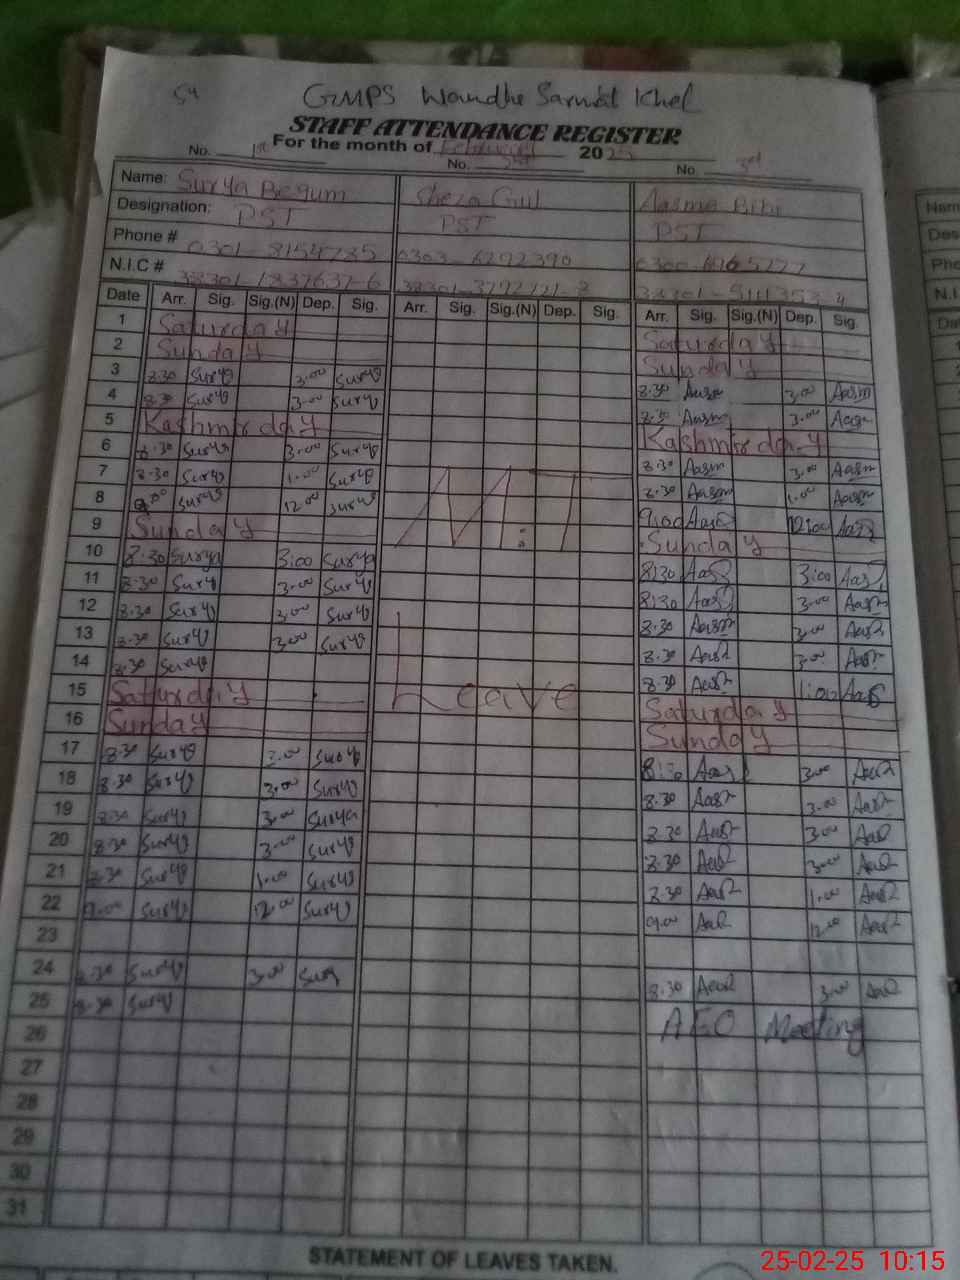 54
GMPS Wandhe Sarmst Khel
STAFF ATTENDANCE REGISTER
For the month of February 2025
No. 1st No. 2nd No. 3rd
Name: Surya Begum Sheza Gul Aasma Bibi
Designation: PST PST PST
Phone # 0301-8154785 0303-6292390
N.I.C # 38301-1837637-6
Date Arr. Sig. Sig.(N) Dep. Sig. Arr. Sig. Sig.(N) Dep. Sig. Arr. Sig. Sig.(N) Dep. Sig.
1 Saturday Saturday
2 Sunday Sunday
3 8.30 Surya 3.00 Surya 8.30 Aasm 3.00 Aasm
4 8.30 Surya 3.00 Surya 8.30 Aasm 3.00 Aasm
5 Kashmir day Kashmir day
6 8.30 Surya 3.00 Surya 8.30 Aasm 3.00 Aasm
7 8.30 Surya 1.00 Surya M.T 8.30 Aasm 1.00 Aasm
8 9.00 Surya 12.00 Surya 9:00 12:00
9 Sunday Sunday
10 8.30 Surya 3:00 Surya 8:30 3:00
11 8.30 Surya 3.00 Surya 8:30 3.00
12 8.30 Surya 3.00 Surya 8.30 Aasm 3.00 Aasm
13 8.30 Surya 3.00 Surya 8.30 3.00
14 8.30 Surya 8.30 1:00
15 Saturday Leave Saturday
16 Sunday Sunday
17 8.30 Surya 3.00 Surya 8:30 3.00
18 8.30 Surya 3.00 Surya 8.30 3.00
19 8.30 Surya 3.00 Surya 8.30 3.00
20 8.30 Surya 3.00 Surya 8.30 3.00
21 8.30 Surya 1.00 Surya 8.30 1.00
22 9.00 Surya 12.00 Surya 9.00 12.00
23
24 8.30 Surya 3.00 Surya 8.30 3.00
25 8.30 Surya AEO Meeting
26
27
28
29
30
31
STATEMENT OF LEAVES TAKEN.
25-02-25 10:15